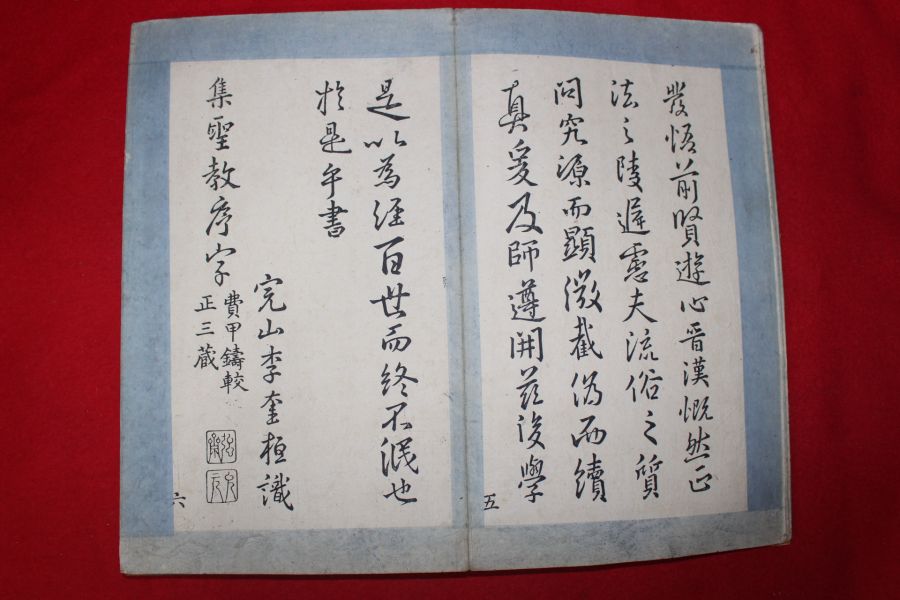 發悟前賢遊心晉漢慨然正
法之陵遲慮夫流俗之質
問究源而顯微截偽而續
真爰及師遵開茲後學
五
是以為經百世而終不泯也
於是乎書
完山李奎桓識
集聖教序字
費甲鑄較
正三藏
六